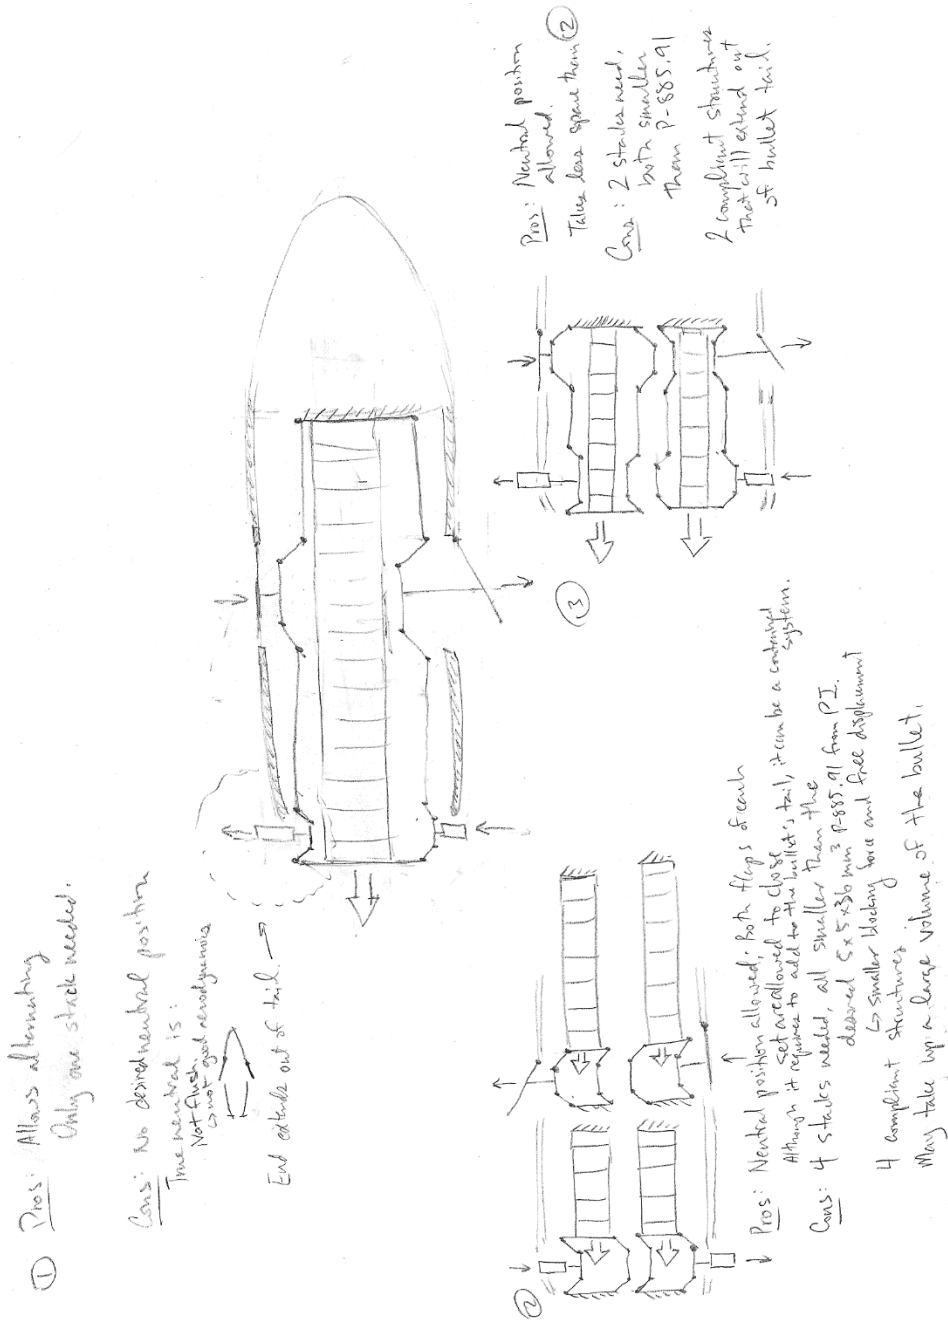 ①
Pros: Allows alternating
Only one stack needed.
Cons: No desired neutral position
True neutral is:
Not flush
↳ not good aerodynamics
End extends out of tail. →
②
Pros: Neutral position allowed; Both flaps of each
set are allowed to close
Although it requires to add to the bullet's tail, it can be a contained system.
Cons: 4 stacks needed, all smaller than the
desired 5x5x36 mm³ P-885.91 from PI.
↳ smaller blocking force and free displacement
4 compliant structures
May take up a large volume of the bullet.
③
Pros: Neutral position
allowed.
Takes less space than ②
Cons: 2 stacks need,
both smaller
than P-885.91
2 compliant structures
that will extend out
of bullet tail.